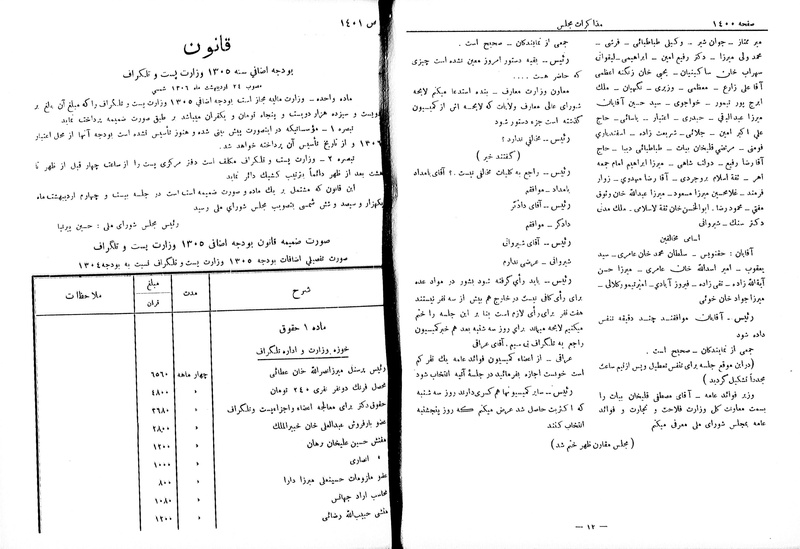 صفحه ۱۴۰۰
مذاکرات مجلس
میر ممتاز ـ جوان شیر ـ وکیلی طباطبائی ـ فرشی ـ
محمد ولی میرزا ـ دکتر رفیع امین ـ ابراهیمی ـ لیقوانی
سهراب خان ساکینیان ـ یحیی خان زنگنه اعظمی
آقا علی زارع ـ معظمی ـ وزیری ـ نگهبان ـ ملک
ایرج پور تیمور ـ خواجوی ـ سید حسین آقایان
میرزا عبدالباقی ـ حیدری ـ اعتبار ـ یاسائی ـ حاج
علی اکبر امین ـ جلائی ـ شریعت زاده ـ اسفندیاری
فومنی ـ مرتضی قلیخان بیات ـ طباطبائی دیبا ـ حاج
آقا رضا رفیع ـ دولت شاهی ـ میرزا ابراهیم امام جمعه
اهر ـ ثقة اسلام بروجردی ـ آقا رضا مهدوی ـ زوار
فرمند ـ غلامحسین میرزا مسعود ـ میرزا عبدالله خان وثوق
مفتی ـ محمود رضا ـ ابوالحسن خان ثقة الاسلامی ـ ملک مدنی
دکتر سنک ـ شیروانی
اسامی مخالفین
آقایان : حقنویس ـ سلطان محمد خان عامری ـ سید
یعقوب ـ امیر اسدالله خان عامری ـ میرزا حسن
آیة الله زاده ـ تقی زاده ـ فیروز آبادی ـ امیرتیمور کلالی ـ
میرزا جواد خان خوئی
رئیس ـ آقایان موافقند چند دقیقه تنفس
داده شود
جمعی از نمایندگان ـ صحیح است .
( در این موقع جلسه برای تنفس تعطیل و پس از نیم ساعت
مجدداً تشکیل گردید )
وزیر فوائد عامه ـ آقای مصطفی قلیخان بیات را
بسمت معاونت کل وزارت فلاحت و تجارت و فوائد
عامه بمجلس شورای ملی معرفی میکنم
جمعی از نمایندگان ـ صحیح است .
رئیس ـ بقیه دستور امروز معین نشده است چیزی
که حاضر هست ....
وزیر معارف ـ بنده استدعا میکنم لایحه
شورای عالی معارف ولایات که لایحه اش از کمیسیون
گذشته است جزء دستور شود
رئیس ـ مخالفی ندارد ؟
( گفتند خیر )
رئیس ـ راجع به کلیات مخالفی نیست . ؟ آقای بامداد
بامداد ـ موافقم
رئیس ـ آقای دادگر
دادگر ـ موافقم
رئیس ـ آقای شیروانی
شیروانی ـ عرضی ندارم
رئیس ـ باید رأی گرفته شود بشور در مواد عده
برای رأی کافی نیست در خارج هم بیش از سه نفر نیستند
هفت نفر برای رأی لازم است بنا بر این جلسه را ختم
میکنیم لایحه میماند برای روز سه شنبه بعد هم خبر کمیسیون
راجع به تلگراف بی سیم . آقای عراقی
عراقی ـ از اعضاء کمیسیون فوائد عامه یک نفر کم
است خواست اجازه بفرمائید در جلسه آتیه انتخاب شود
رئیس ـ سایر کمیسیونها هم کسری دارند روز سه شنبه
که اکثریت حاصل شد عرض میکنم که روز پنجشنبه
انتخاب کنند
( مجلس مقارن ظهر ختم شد )
ـ ۱۲ ـ
ص ۱۴۰۱
قانون
بودجه اضافی سنه ۱۳۰۵ وزارت پست و تلگراف
مصوب ۲۴ اردیبهشت ماه ۱۳۰۶ شمسی
ماده واحده ـ وزارت مالیه مجاز است بودجه اضافی ۱۳۰۵ وزارت پست و تلگراف را که مبلغ آن بالغ بر
دویست و سیزده هزار و دویست و پنجاه تومان و یکقران میباشد بر طبق صورت ضمیمه پرداخت نماید
تبصره ۱ ـ مؤسساتیکه در اینصورت پیش بینی شده و هنوز تأسیس نشده است بودجه آنها از محل اعتبار
۱۳۰۶ و از تاریخ تأسیس آن پرداخته خواهد شد .
تبصره ۲ ـ وزارت پست و تلگراف مکلف است دفتر مرکزی پست را از ساعت چهار قبل از ظهر تا
هشت بعد از ظهر دائماً بترتیب کشیک دائر نماید
این قانون که مشتمل بر یک ماده و صورت ضمیمه است در جلسه بیست و چهارم اردیبهشت ماه
یکهزار و سیصد و شش شمسی بتصویب مجلس شورای ملی رسید
رئیس مجلس شورای ملی : حسین پیرنیا
صورت ضمیمه قانون بودجه اضافی ۱۳۰۵ وزارت پست و تلگراف
صورت تفصیلی اضافات بودجه ۱۳۰۵ وزارت پست و تلگراف نسبت به بودجه ۱۳۰۴
شرح مدت مبلغ قران ملاحظات
ماده ۱ حقوق
حوزه وزارت و اداره تلگراف
رئیس پرسنل میرزا نصرالله خان عطائی چهار ماهه ۶۵۶۰
محصل فرنگ دو نفر نفری ۲۴۰ تومان » ۴۸۰۰
حقوق دکتر برای معالجه اعضاء و اجزاء پست و تلگراف » ۲۶۸۰
عضو بارفروش عبدالعلی خان خبیرالملک » ۲۸۰۰
مفتش حسین علیخان رهان » ۱۲۰۰
» انصاری » ۱۰۰۰
عضو ملزومات حسینعلی میرزا دارا » ۸۰۰
محاسب اراد جهانس » ۱۰۸۰
منشی حبیب الله رضائی » ۱۲۰۰